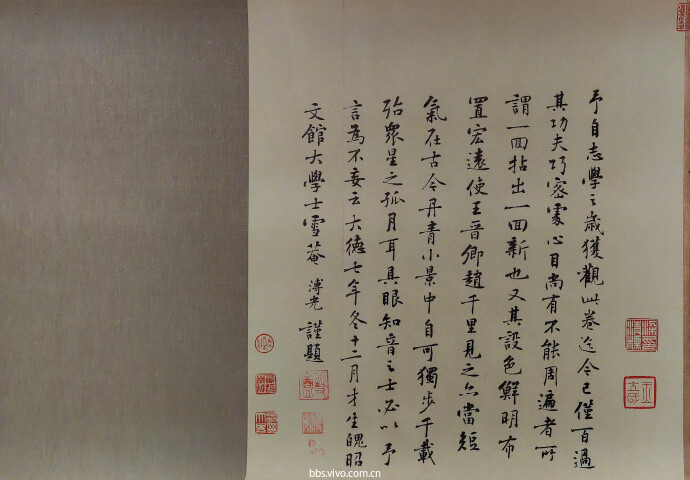 予自志學之歲獲觀此卷迄今已僅百過
其功夫巧密處心目尚有不能周遍者所
謂一回拈出一回新也又其設色鮮明布
置宏遠使王晉卿趙千里見之亦當短
氣在古今丹青小景中自可獨步千載
殆眾星之孤月耳具眼知音之士必以予
言為不妄云大德七年冬十二月才生魄昭
文館大學士雪菴溥光謹題
bbs.vivo.com.cn